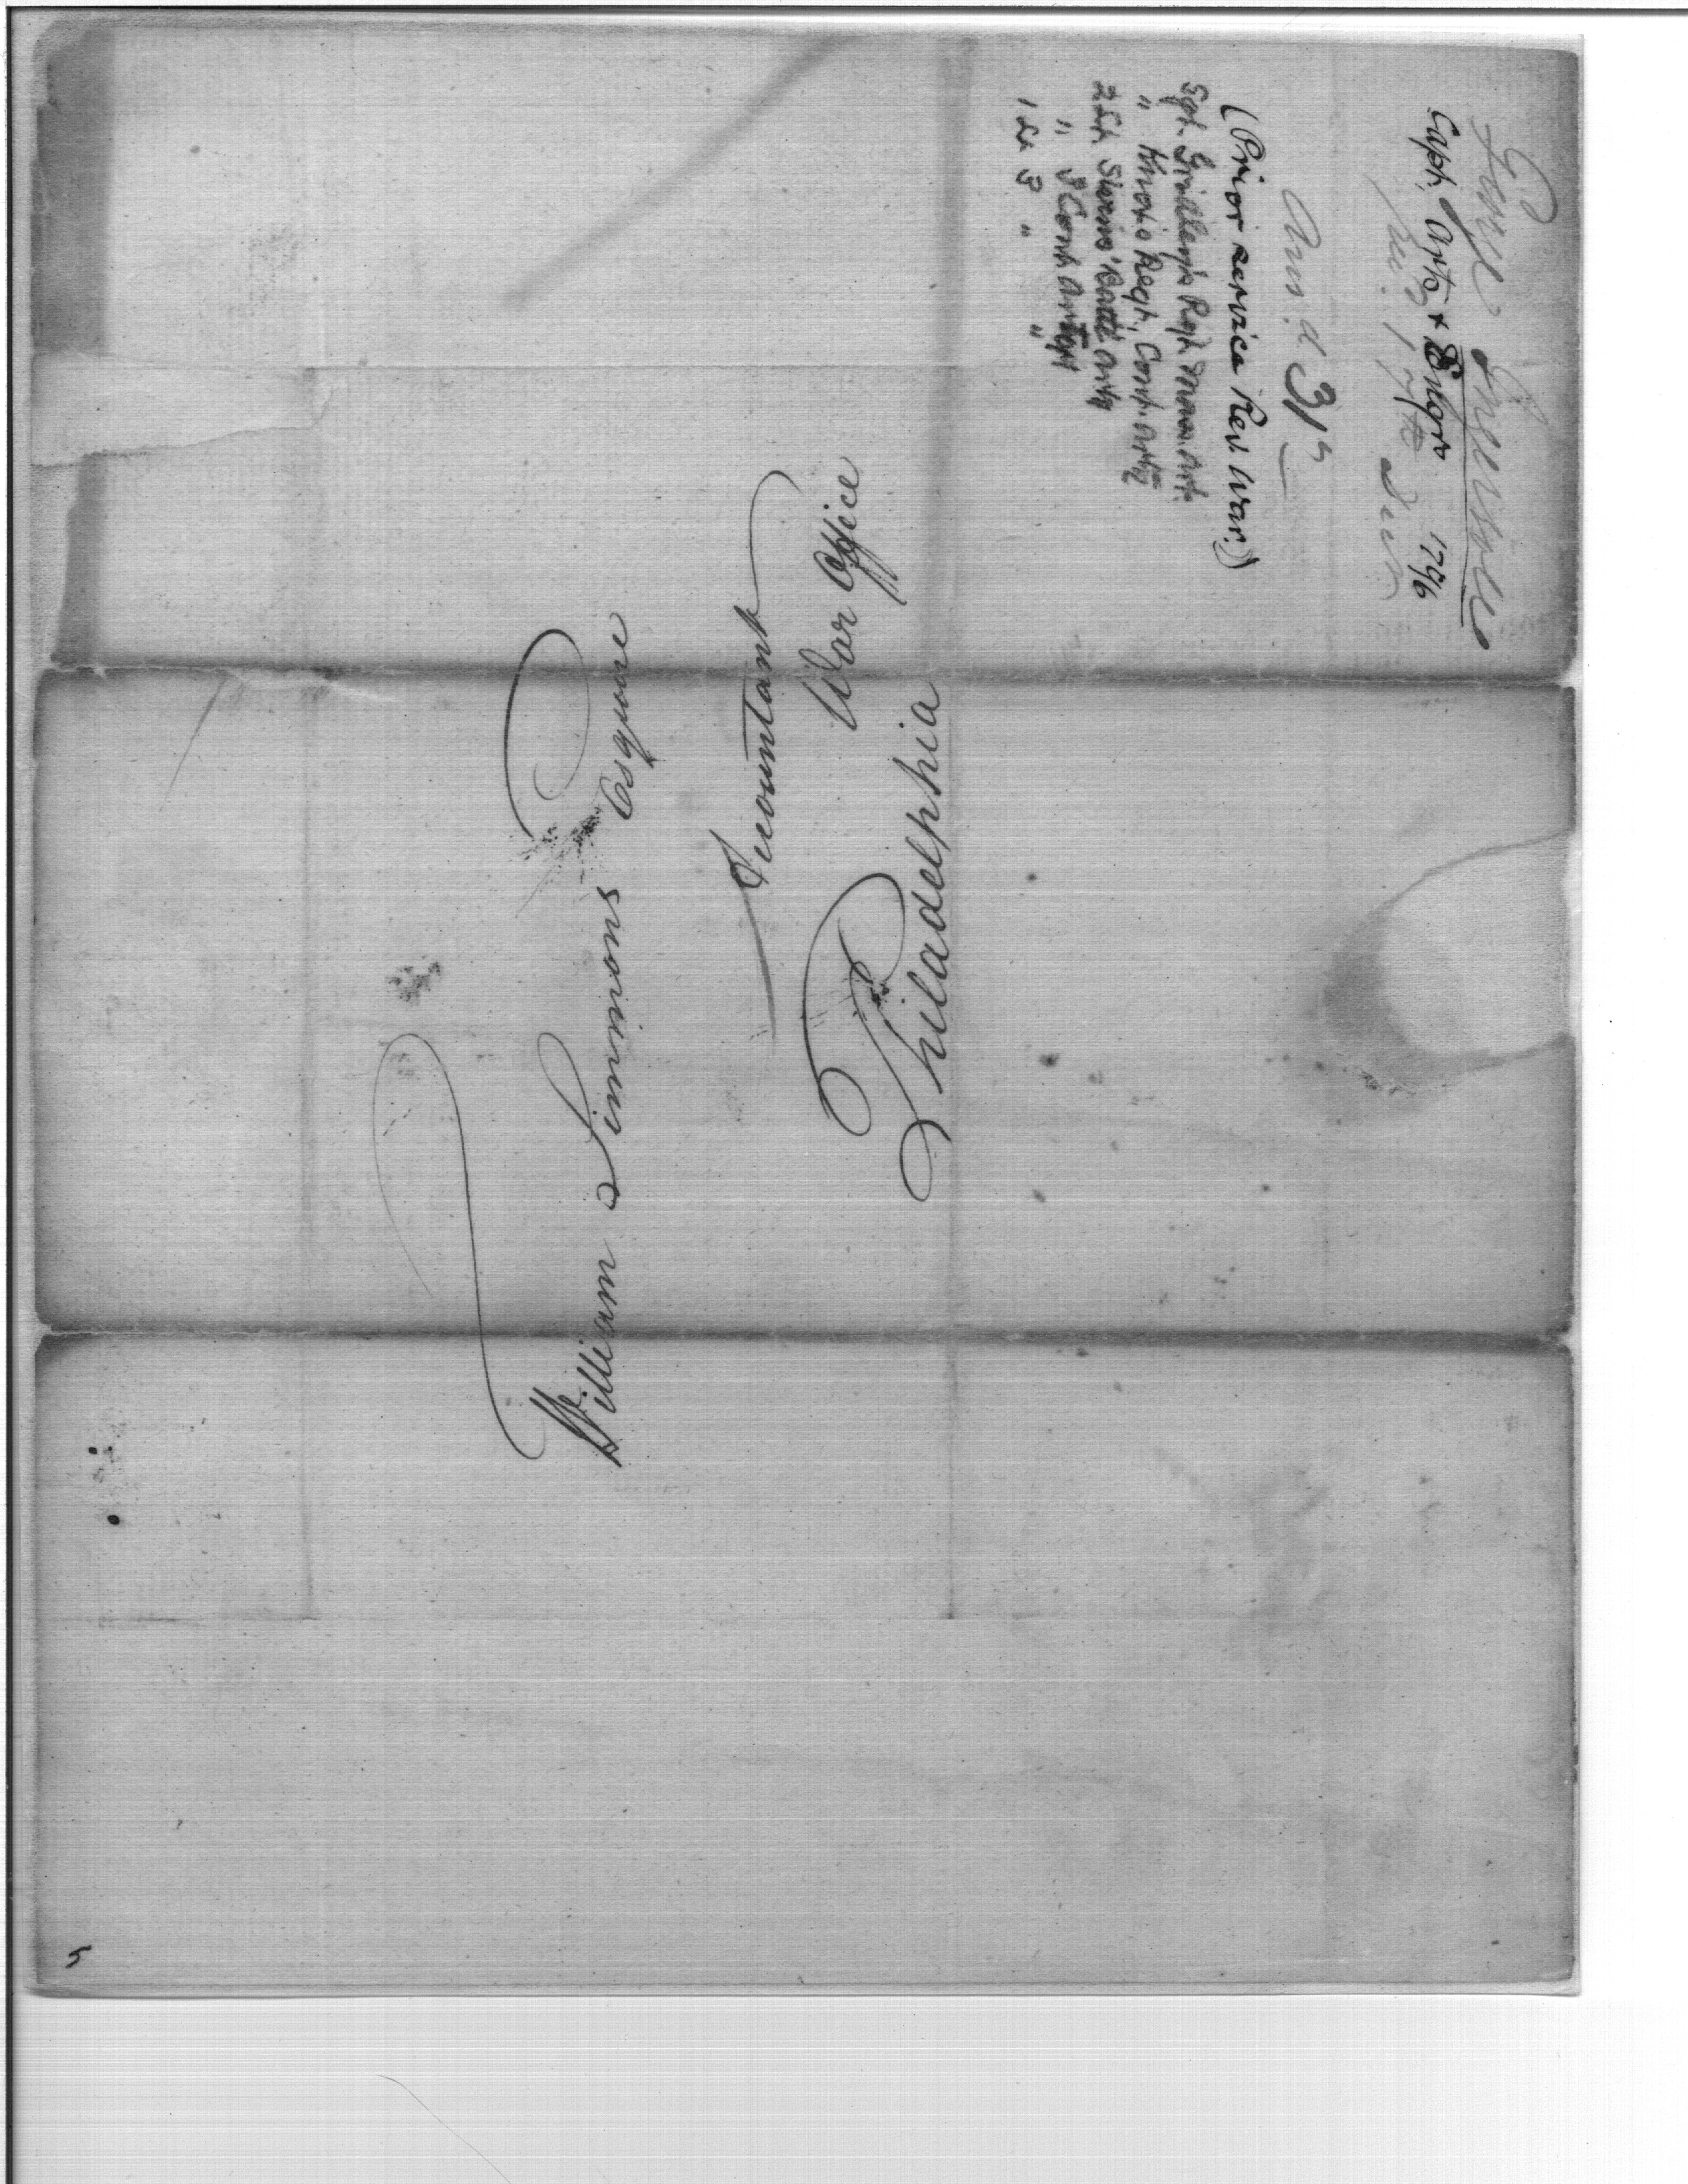 William Simmons Esquire
Accountant
War Office
Philadelphia
George Ingersoll
Capt. Arty & Engrs. 1796
Ans.d 31st
(Prior service Rev. War.)
Sgt. Gridley's Regt. Mass. Art.
" Knox's Regt. Cont. Arty
2 Lt. Stevens' Batt. Arty
" 3 Cont. Arty
1 Lt 3 " "
5